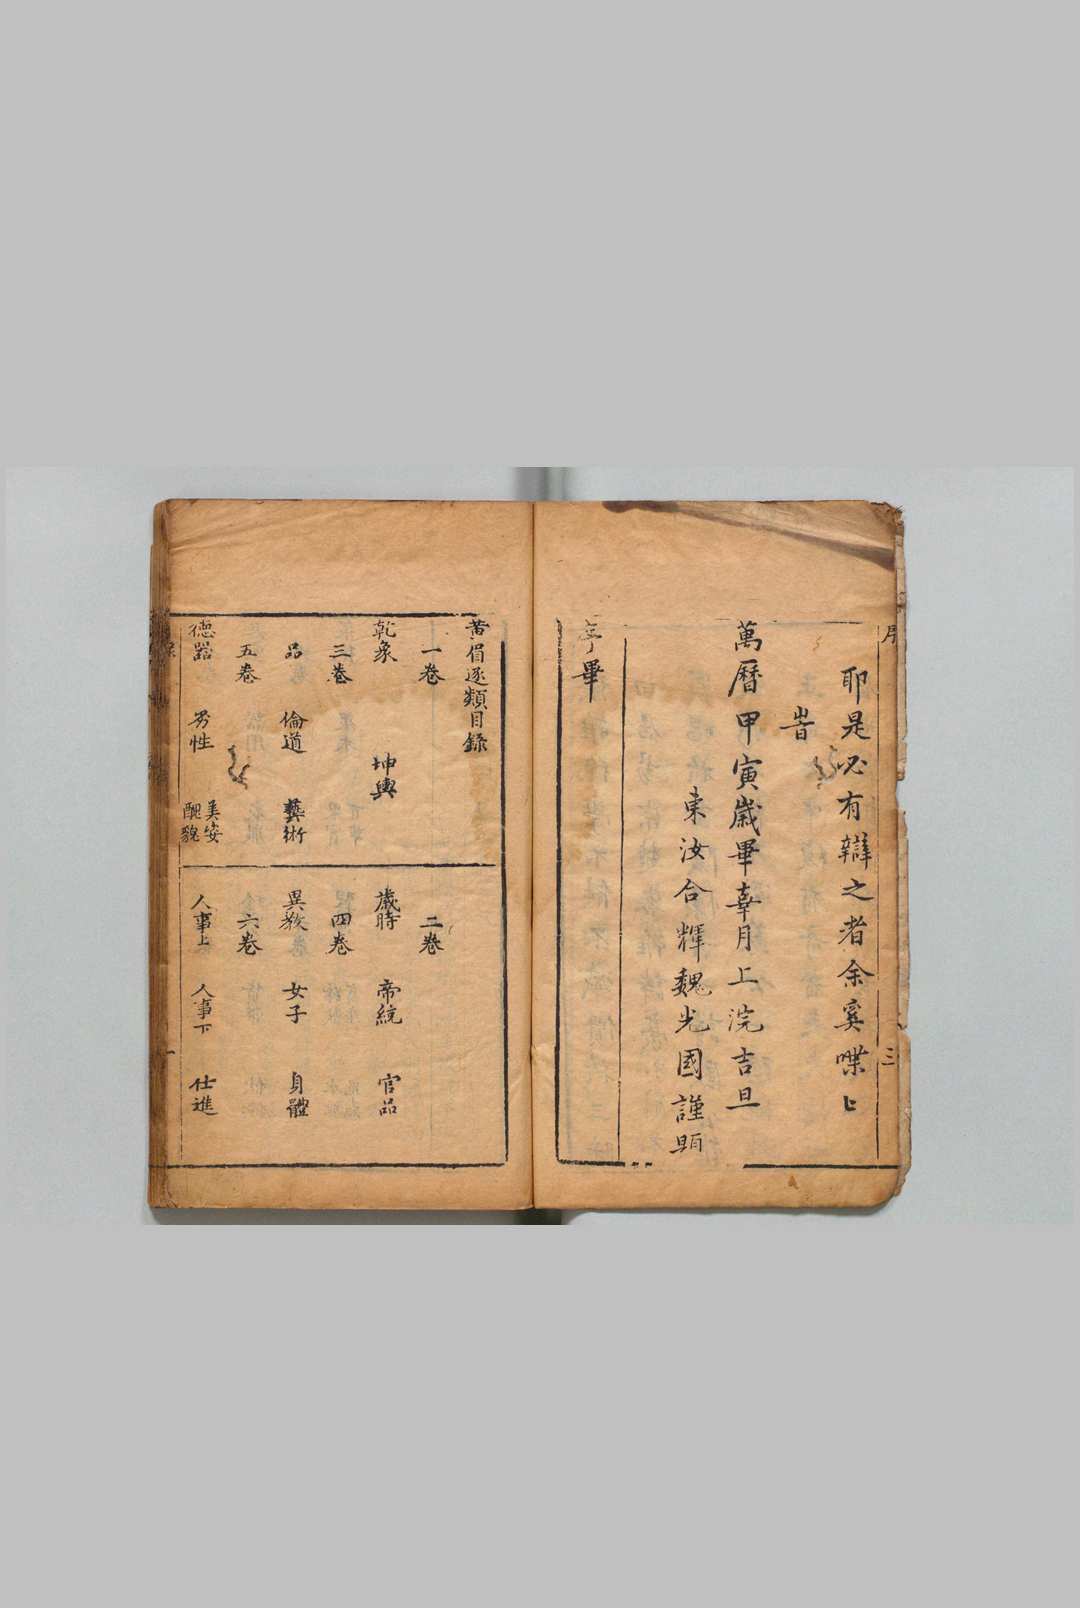 序
三
耶是必有辯之者余奚喋〻
旹
萬曆甲寅歲畢辜月上浣吉旦
東汝合輝魏光國謹題
序畢
黃眉逐類目錄
一卷
二卷
乾象 坤輿
歲時 帝統 官品
三卷
四卷
品 倫道 藝術
異教 女子 身體
五卷
六卷
德器 男性 美姿 醜貌
人事上 人事下 仕進